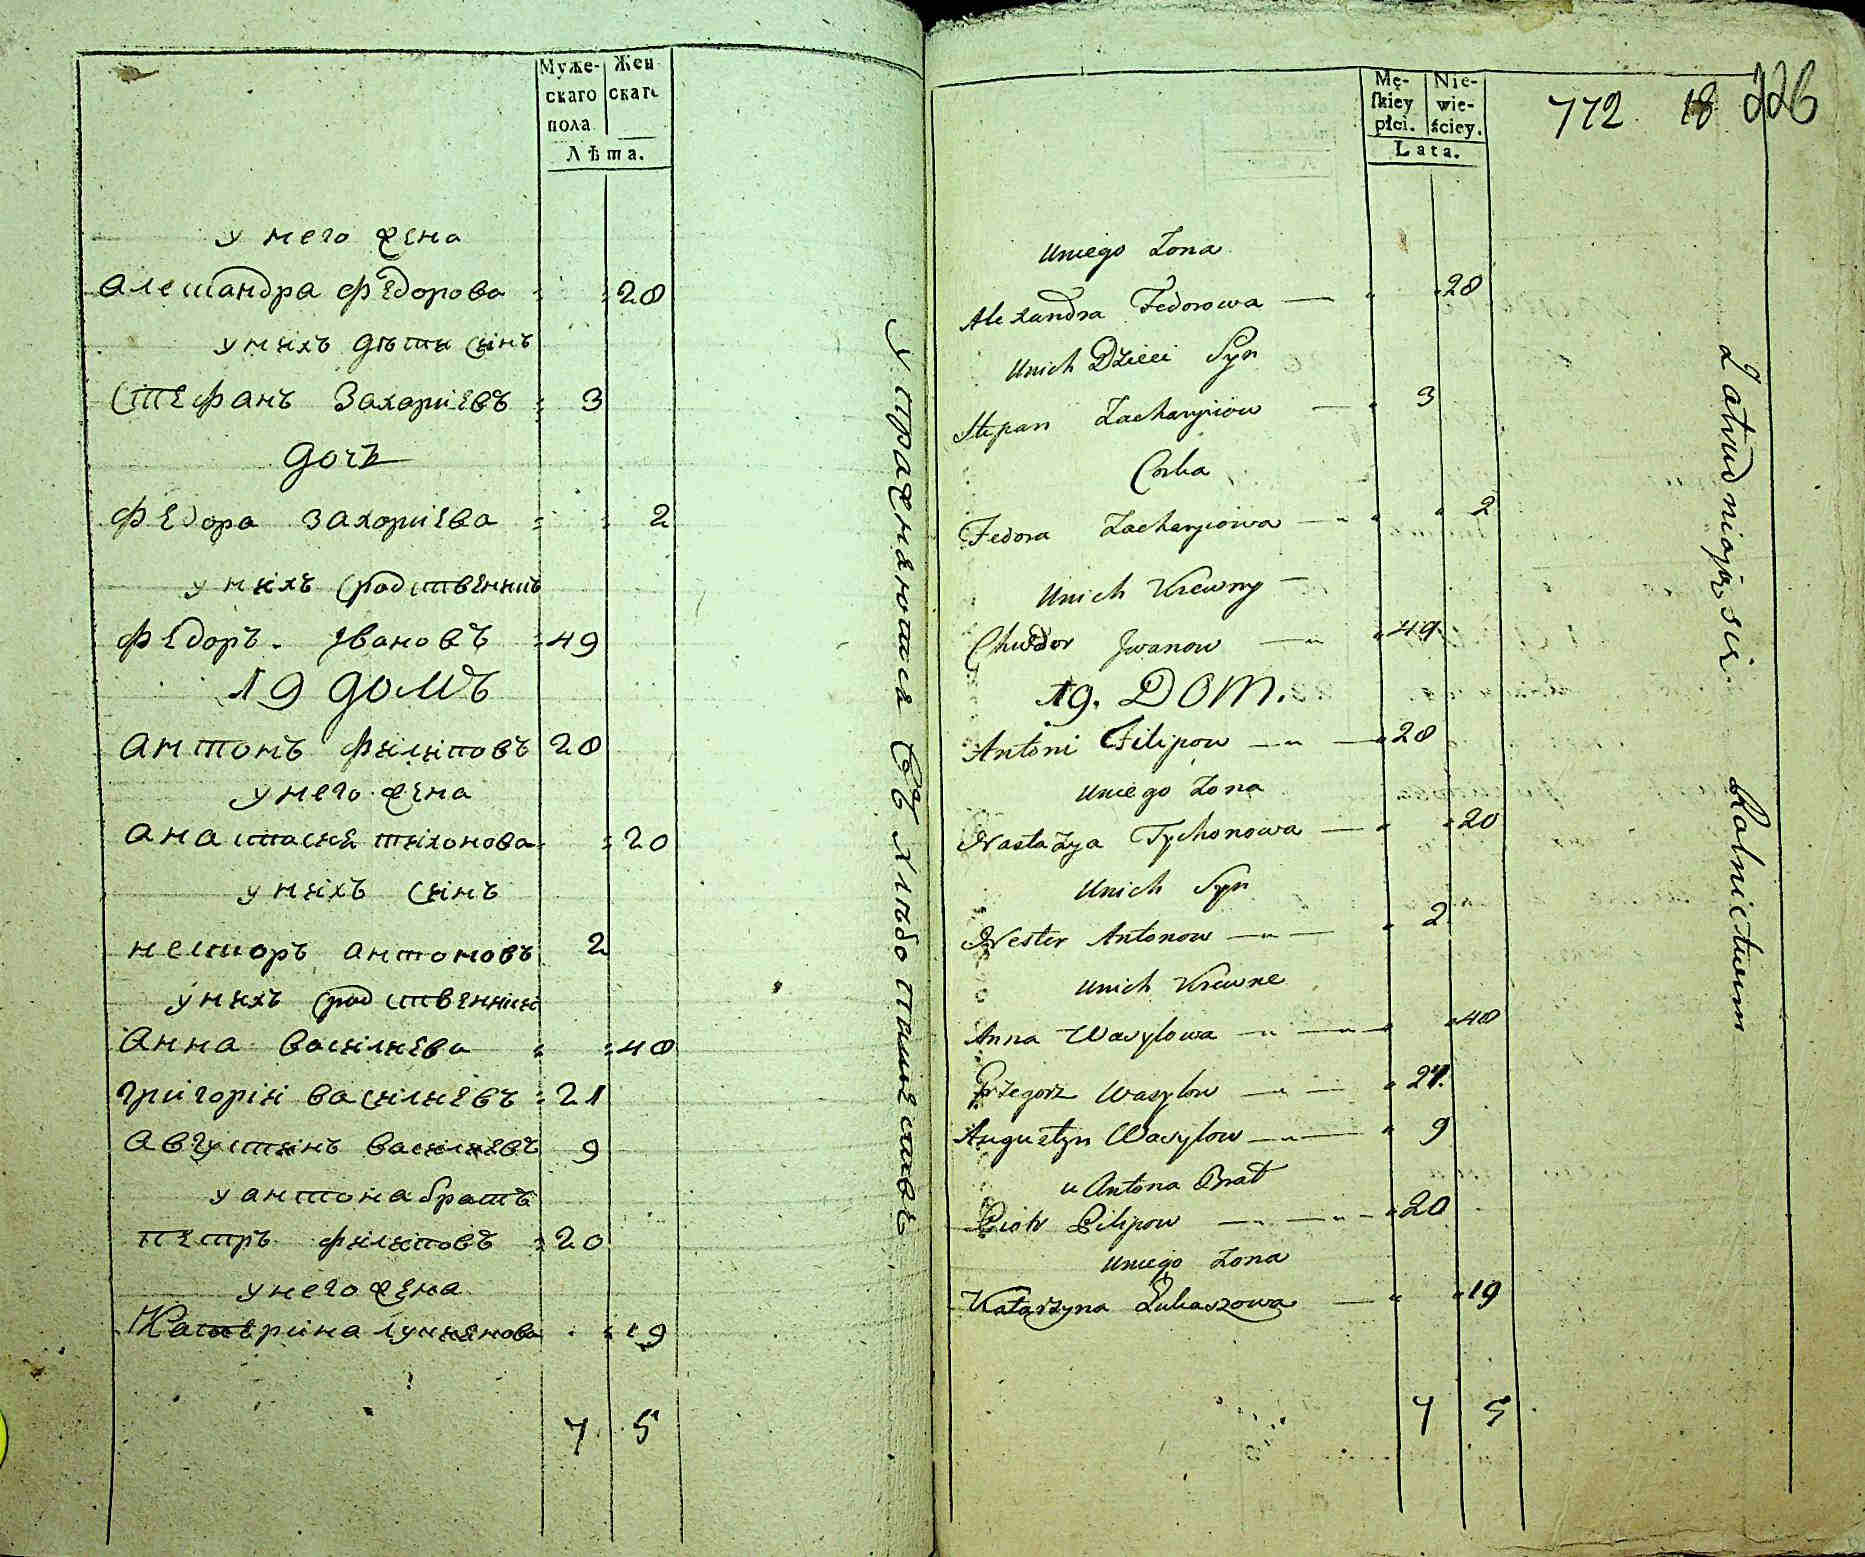 Муже-
скаго
пола
Жен
скаго
Лѣта.
у него жена
Алеѯандра Федорова 28
у нихъ дѣти сынъ
Стефанъ Захариевъ 3
дочь
Федора Захариева 2
у нихъ сродственникъ
Федоръ Ивановъ 49
19 домъ
Антонъ Филиповъ 28
у него жена
Анастасия Тихонова 20
у нихъ сынъ
Несторъ Антоновъ 2
у нихъ сродственники
Анна Василиева 48
Григорий Василиевъ 21
Августинъ Василиевъ 9
у Антона братъ
Петръ Филиповъ 20
у него жена
Катерина Лукиянова 19
7 5
Упражняются въ хлѣбопашествѣ
Mę-
skiey
płci.
Nie-
wie-
ściey.
Lata.
772 18 226
Uniego Zona
Alexandra Fedorowa 28
Unich Dzieci Syn
Stepan Zacharyiow 3
Corka
Fedora Zacharyiowa 2
Unich Krewny
Chwedor Jwanow 49
19. DOM.
Antoni Filipow 28
Uniego Zona
Nastazya Tychonowa 20
Unich Syn
Nester Antonow 2
Unich Krewne
Anna Wasylowa 48
Grzegorz Wasylow 21
Augustyn Wasylow 9
u Antona Brat
Piotr Filipow 20
Uniego Zona
Katarzyna Łukaszowa 19
7 5
Zatrudniaią się Rolnictwem